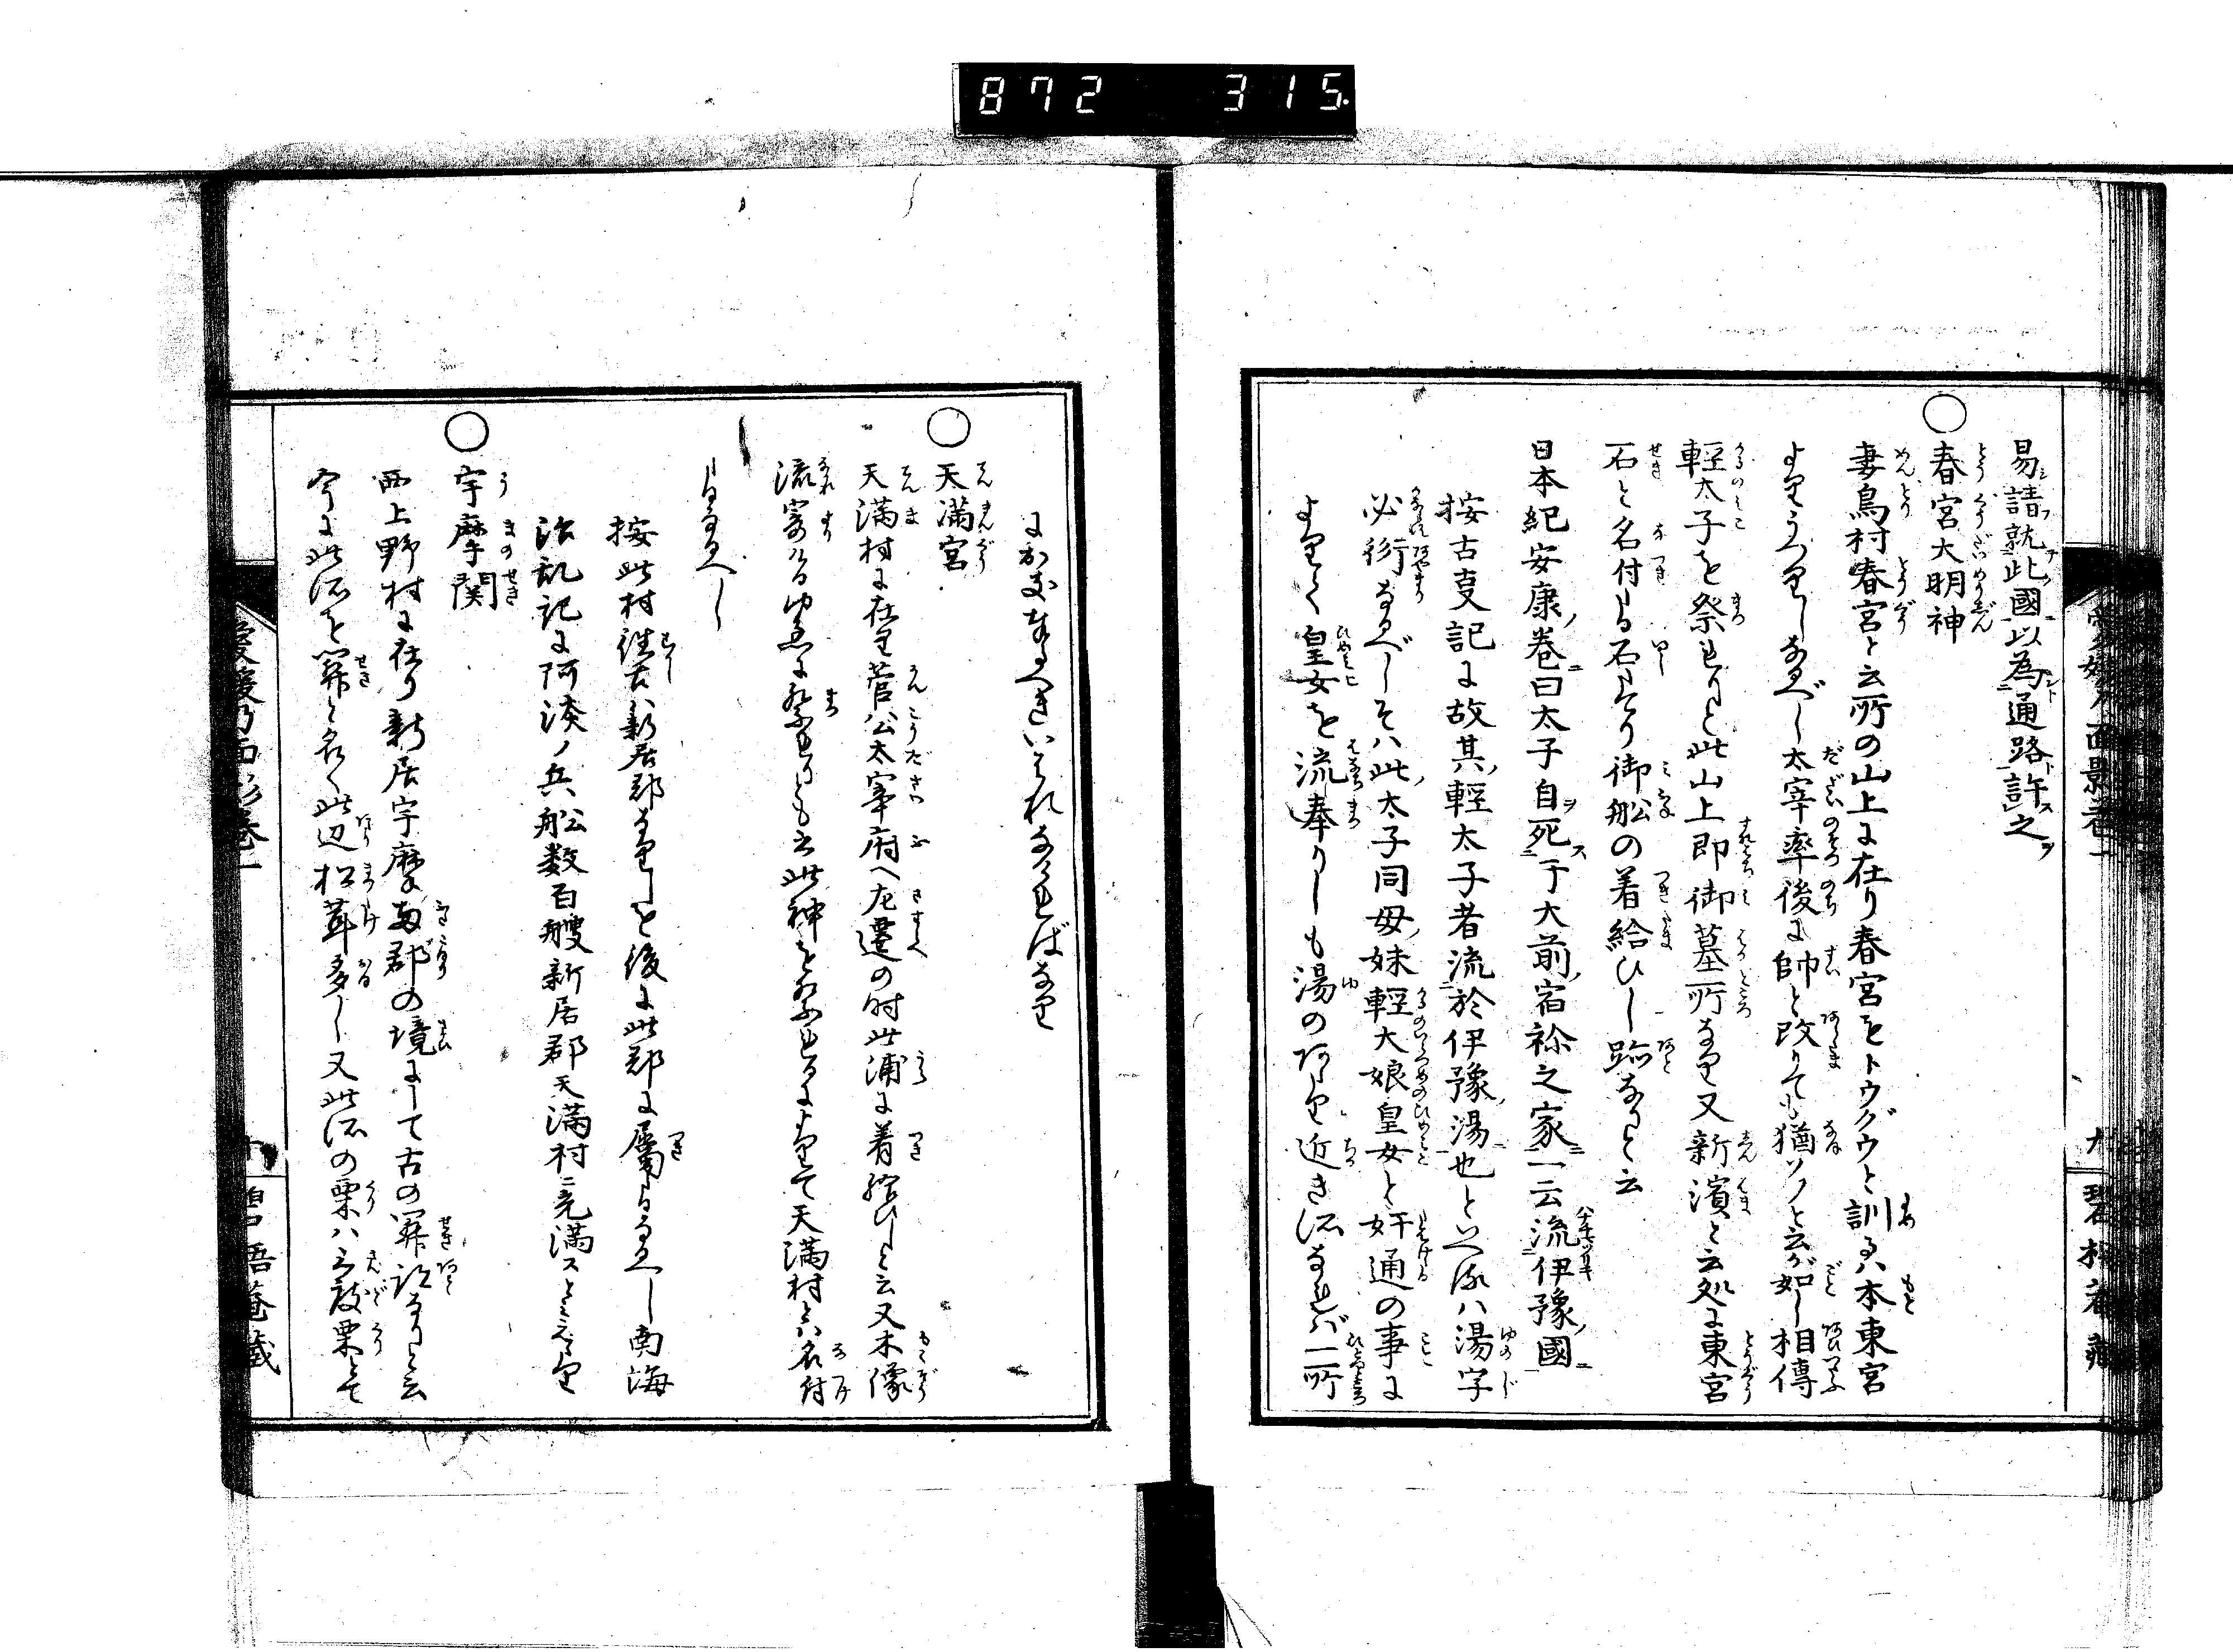 872 315
易請就此國以為通路許之
○春宮大明神
妻鳥村春宮と云所の山上に在り春宮をトウグウと訓るハ本東宮
よりうつりしなるべし太宰率後に帥と改りても猶ソツと云が如し相傳
輕太子を祭れりと此山上即御墓所なり又新濱と云処に東宮
石と名付る石あり御船の着給ひし跡なりと云
日本紀安康ノ巻ニ曰太子自死于大前ノ宿祢之家一云流伊豫ノ國
按古叓記に故其輕太子者流於伊豫湯也といへるハ湯字
必衍なるべしそハ此太子同母妹輕大娘皇女と奸通の事に
よりて皇女を流奉りしも湯のあり近き所なれバ二所
におなすへきいはれなければなり
○天満宮
天満村に在り菅公太宰府へ左遷の時此浦に着給ひしと云又木像
流寄けるゆゑに祭れりとも云此神を祭れるによりて天満村とハ名付
るなるへし
按此村往古ハ新居郡なりしを後に此郡に属るなるへし南海
治乱記に阿淡ノ兵船数百艘新居郡天満村ニ充満スとみえたり
○宇摩関
西上野村に在り新居宇摩両郡の境にして古の関跡なりと云
今に此所を関と名く此辺松茸多し又此所の栗ハ三度栗とて
愛媛乃面影巻一 九 碧梧菴蔵
愛媛乃面影巻一 碧梧菴蔵